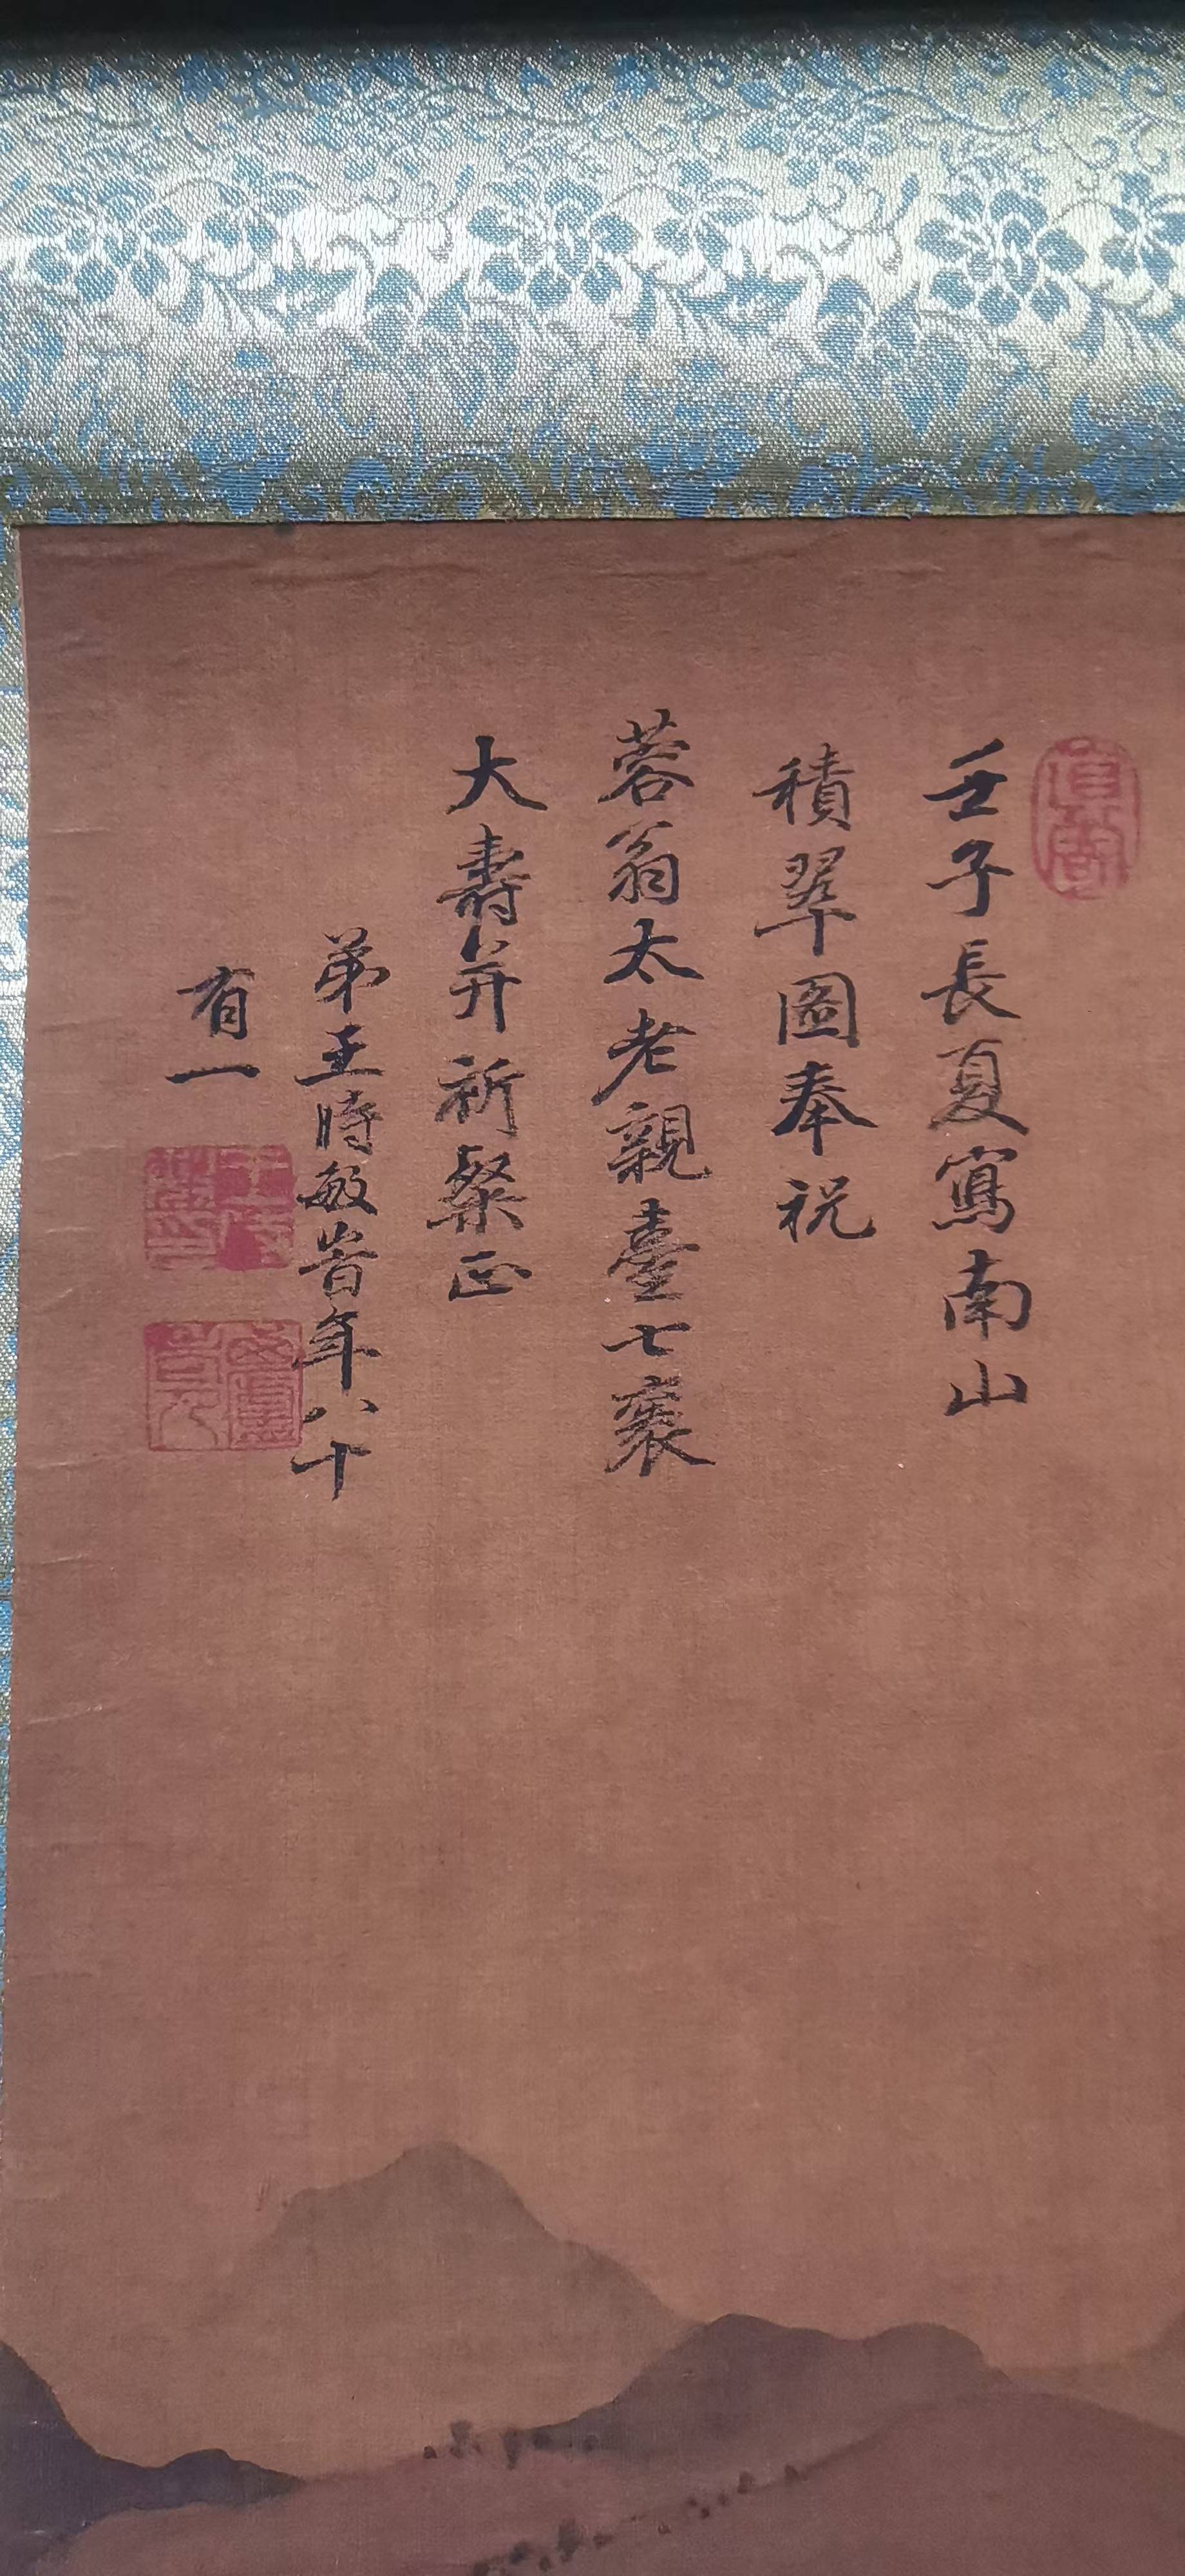 壬子長夏寫南山
積翠圖奉祝
蓉翁太老親臺七褱
大壽并祈粲正
弟王時敏昔年八十
有一